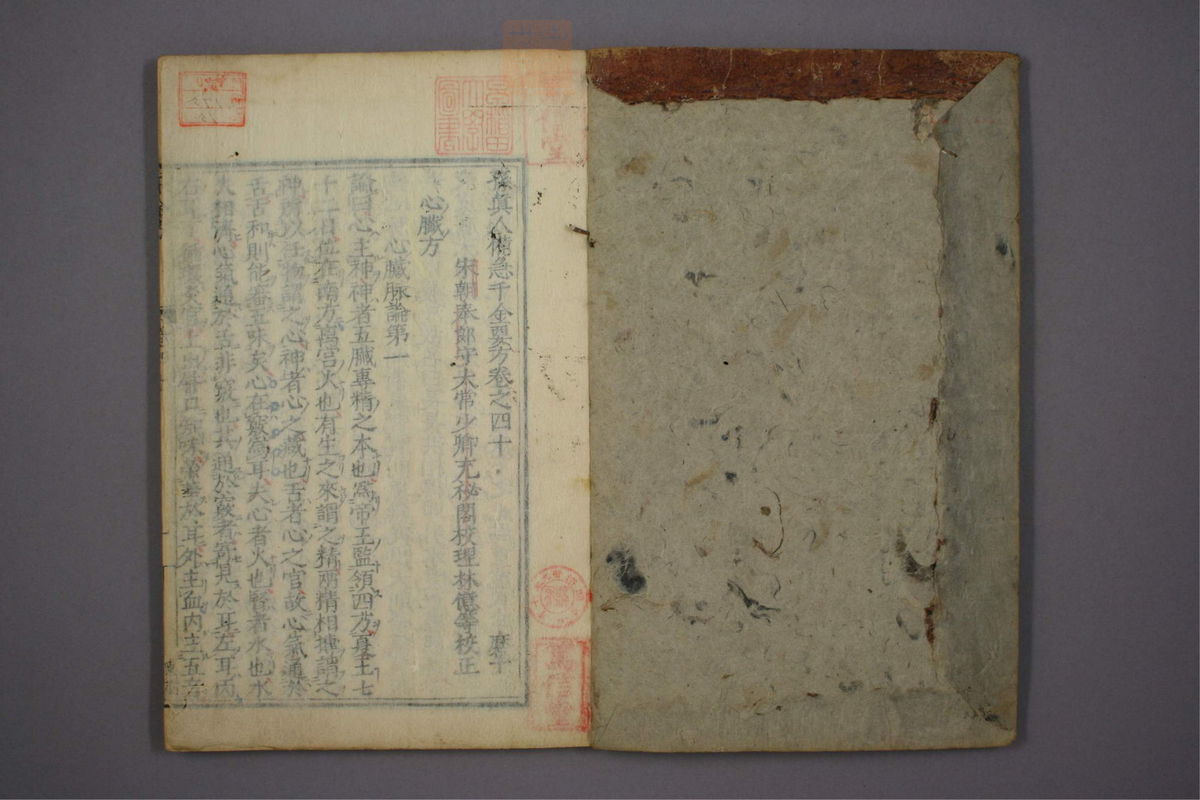 孫真人備急千金要方卷之四十
宋朝奉郎守太常少卿充秘閣校理林億等校正
心臟方
心臟脉論第一
論曰心主神神者五臟專精之本也為帝王監領四方夏王七
十二日位在南方离宮火也有生之來謂之精兩精相搏謂之
神所以任物謂之心神者心之藏也舌者心之官故心氣通於
舌舌和則能審五味矣心在竅為耳夫心者火也腎者水也水
火相濟心氣通於舌非竅也其通於竅者寄見於耳左耳丙
於耳外主血內主五音